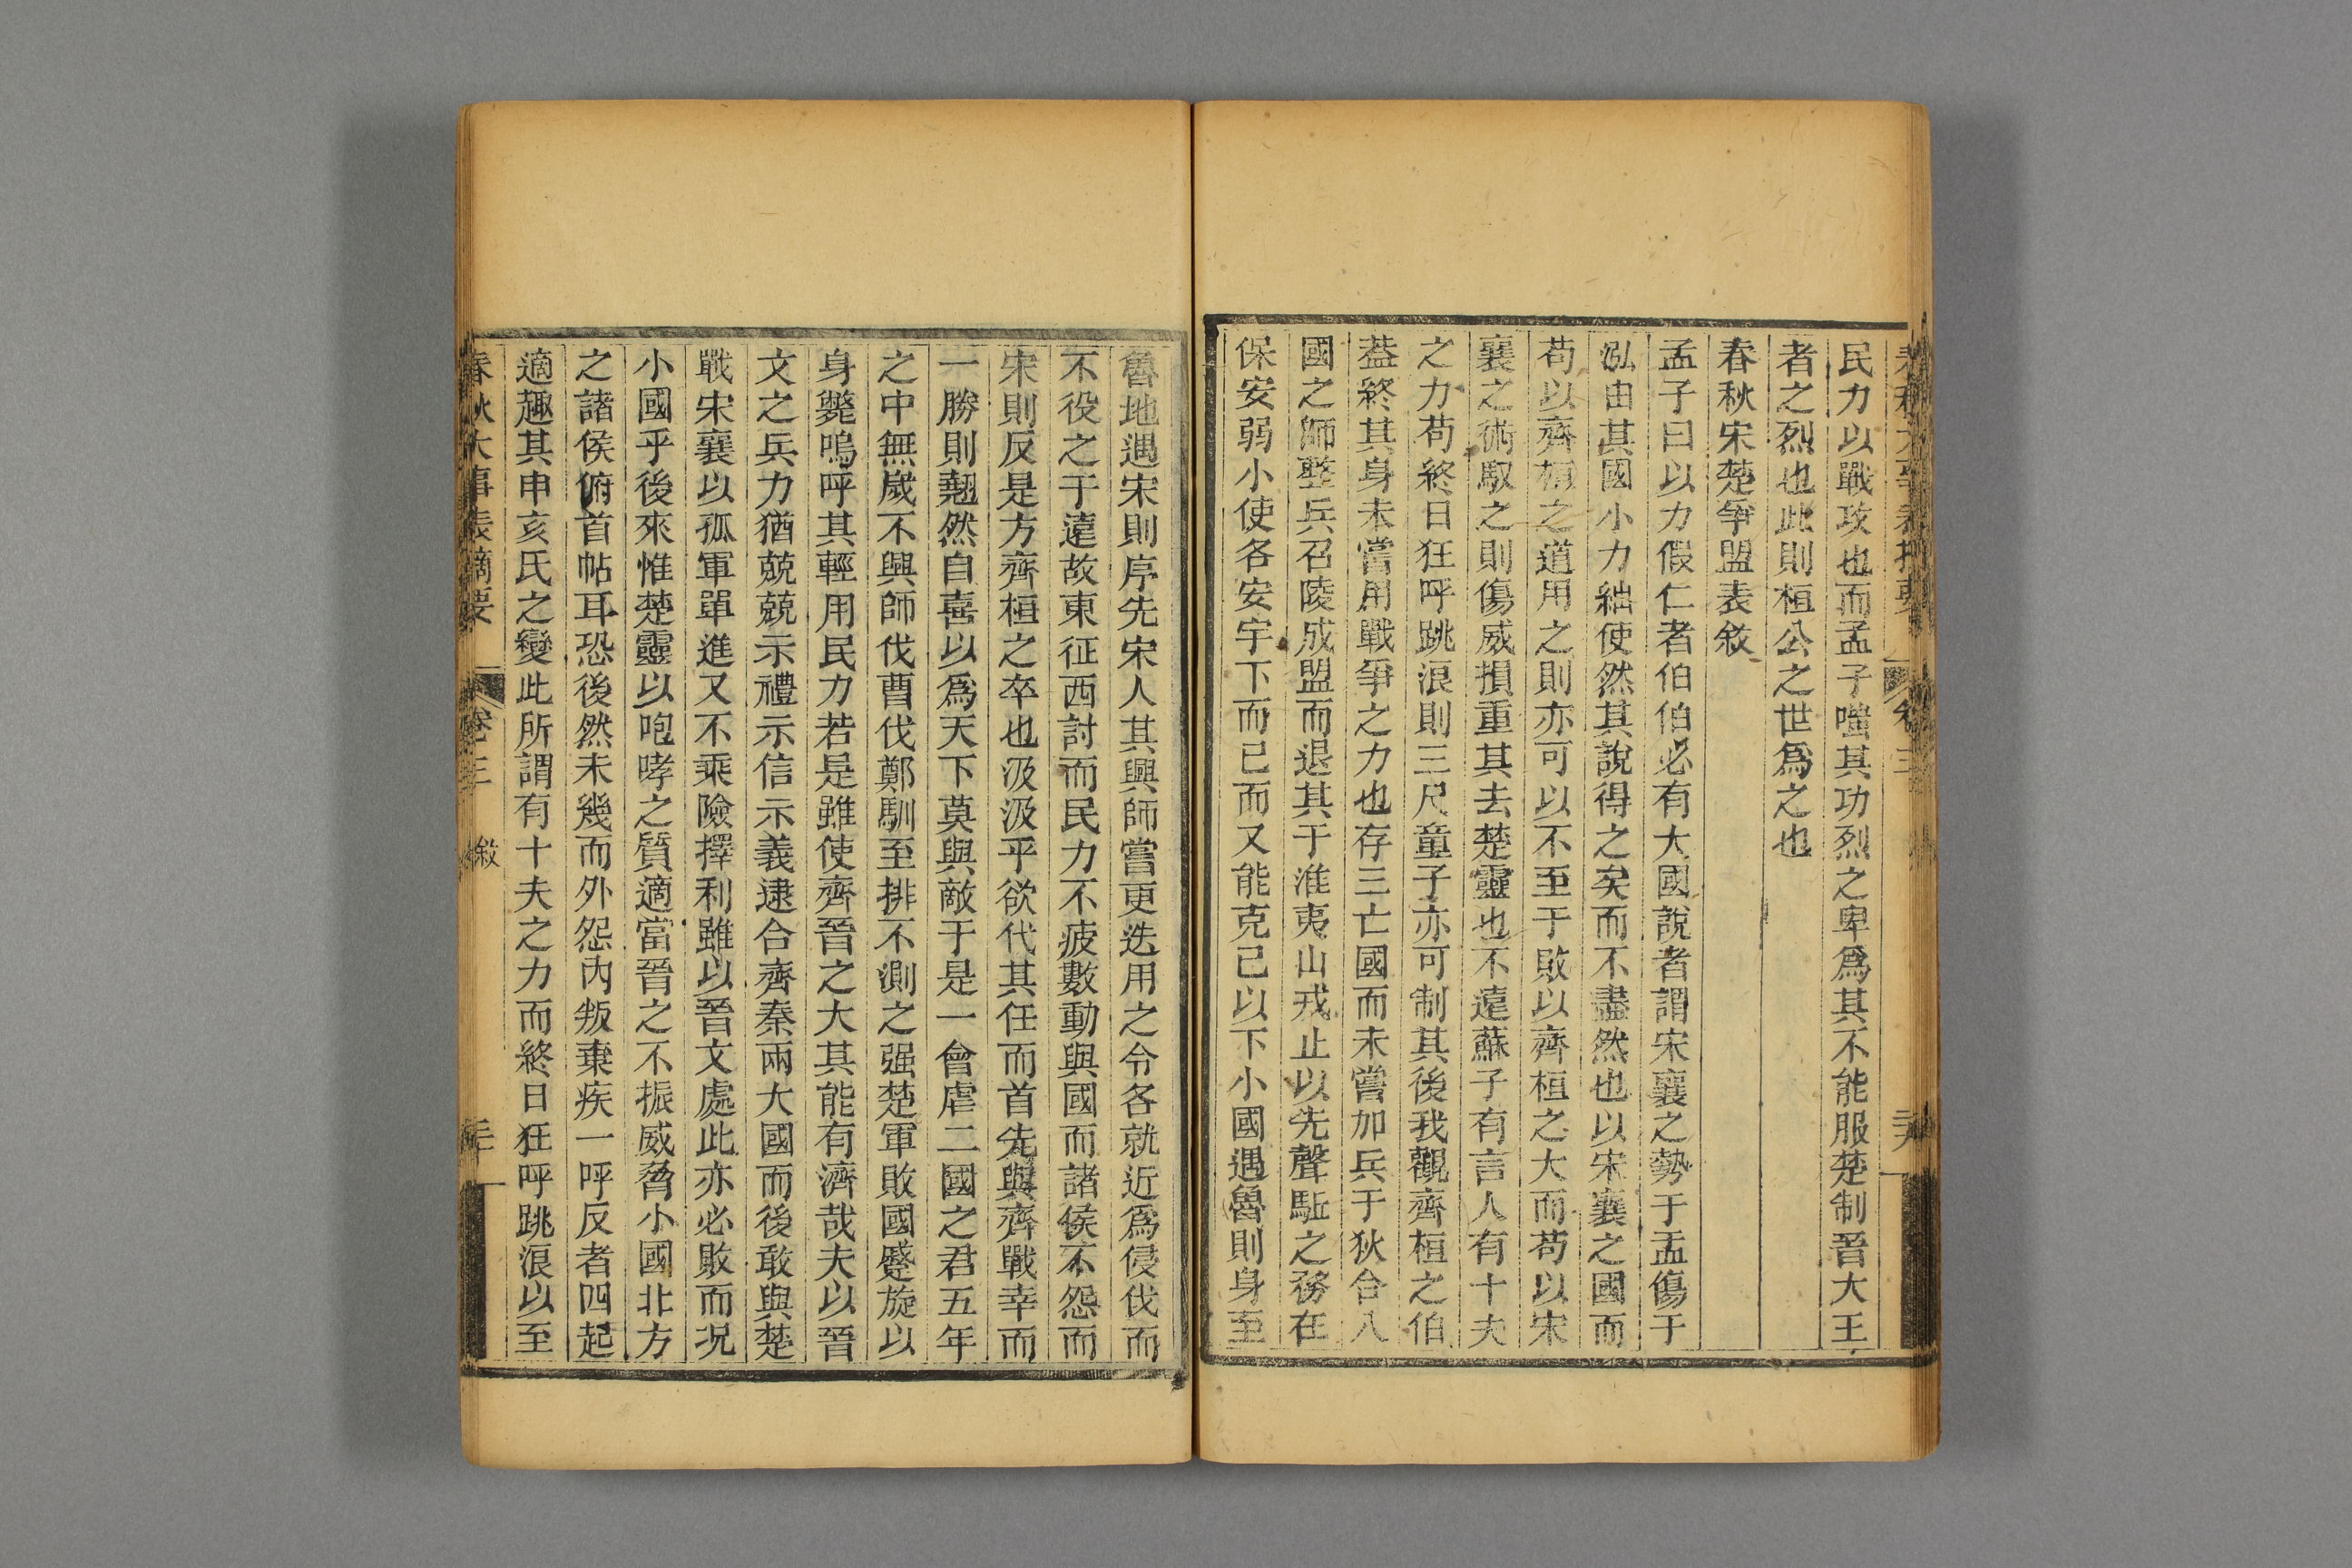 民力以戰攻也而孟子嗤其功烈之卑爲其不能服楚制晉大王
者之烈也此則桓公之世爲之也
春秋宋楚爭盟表敘
孟子曰以力假仁者伯伯必有大國說者謂宋襄之勢于盂傷于
泓由其國小力絀使然其說得之矣而不盡然也以宋襄之國而
苟以齊桓之道用之則亦可以不至于敗以齊桓之大而苟以宋
襄之術馭之則傷威損重其去楚靈也不遠蘇子有言人有十夫
之力苟終日狂呼跳浪則三尺童子亦可制其後我觀齊桓之伯
葢終其身未嘗用戰爭之力也存三亡國而未嘗加兵于狄合八
國之師整兵召陵成盟而退其于淮夷山戎止以先聲駈之務在
保安弱小使各安宇下而已而又能克己以下小國遇魯則身至
魯地遇宋則序先宋人其興師嘗更迭用之令各就近爲侵伐而
不役之于遠故東征西討而民力不疲數動與國而諸侯不怨而
宋則反是方齊桓之卒也汲汲乎欲代其任而首先與齊戰幸而
一勝則翹然自喜以爲天下莫與敵于是一會虐二國之君五年
之中無歲不興師伐曹伐鄭馴至排不測之强楚軍敗國蹙旋以
身斃嗚呼其輕用民力若是雖使齊晉之大其能有濟哉夫以晉
文之兵力猶兢兢示禮示信示義逮合齊秦兩大國而後敢與楚
戰宋襄以孤軍單進又不乘險擇利雖以晉文處此亦必敗而況
小國乎後來惟楚靈以咆哮之質適當晉之不振威脅小國北方
之諸侯俯首帖耳恐後然未幾而外怨內叛棄疾一呼反者四起
適趣其申亥氏之變此所謂有十夫之力而終日狂呼跳浪以至
春秋大事表摘要 卷三 敘 三十